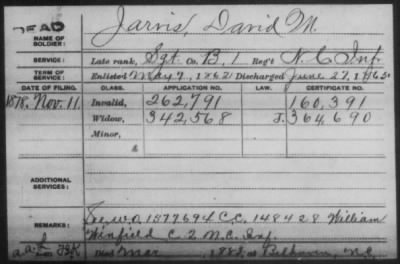 DEAD
NAME OF SOLDIER: Jarvis, David M.
SERVICE: Late rank, Sgt Co. B, 1 Reg't N.C. Inf.
TERM OF SERVICE: Enlisted May 7, 1862 Discharged June 27, 186
DATE OF FILING. CLASS. APPLICATION NO. LAW. CERTIFICATE NO.
1878. Nov. 11. Invalid, 262,791 160,391
Widow, 342,568 364,690
Minor,
ADDITIONAL SERVICES:
REMARKS: 1577694 C.C. 148428 William
Winfield C. 2 N.C. Inf.
Died Mar 188 at Belhaven, N.C.